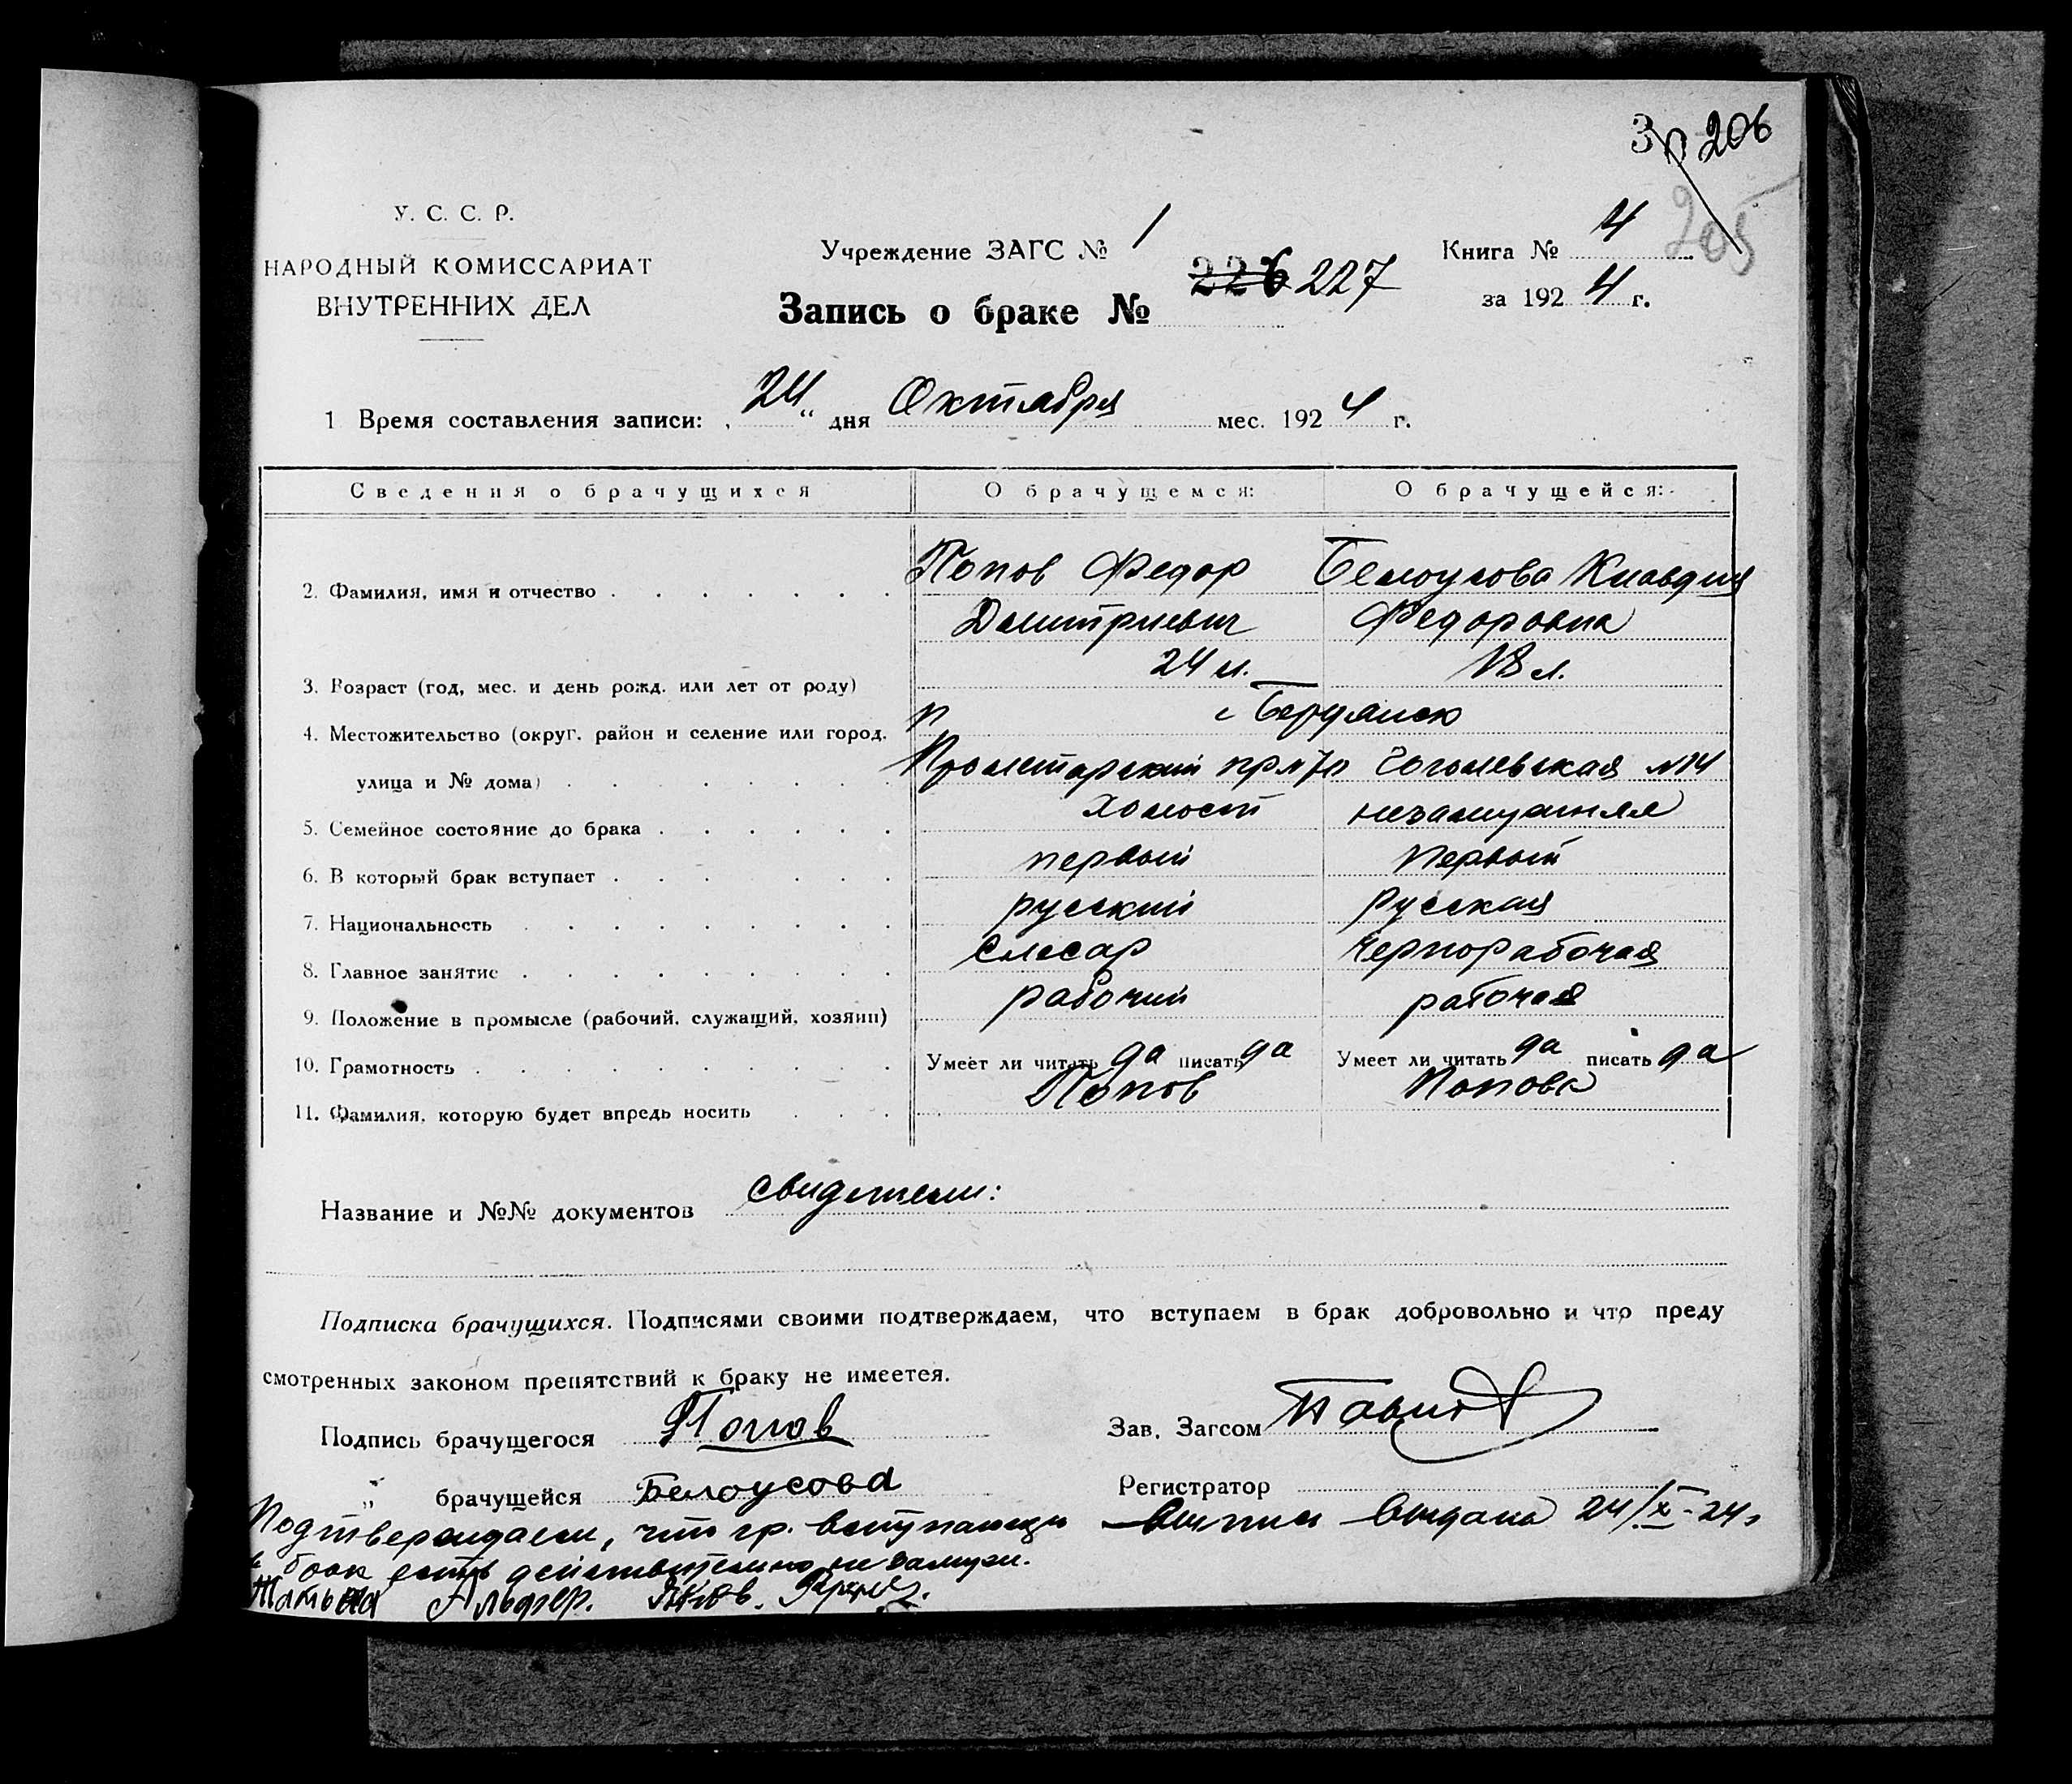 206
205
У. С. С. Р.
НАРОДНЫЙ КОМИССАРИАТ
ВНУТРЕННИХ ДЕЛ
Учреждение ЗАГС № 1
Книга № 4
Запись о браке № 226 227
за 1924 г.
1 Время составления записи: „24“ дня Октября мес. 1924 г.
Сведения о брачущихся О брачущемся: О брачущейся:
2. Фамилия, имя и отчество Попов Федор Белоусова Клавдия
Дмитриевич Федоровна
3. Возраст (год, мес. и день рожд. или лет от роду) 24 л. 18 л.
4. Местожительство (округ, район и селение или город, г Бердянск
улица и № дома) Пролетарский Гоголевская №14
5. Семейное состояние до брака холост незамужняя
6. В который брак вступает первый первый
7. Национальность русский русская
8. Главное занятие слесар чернорабочая
9. Положение в промысле (рабочий, служащий, хозяин) рабочий рабочая
10. Грамотность Умеет ли читать да писать да Умеет ли читать да писать да
11. Фамилия, которую будет впредь носить Попов Попова
Название и №№ документов свидетели:
Подписка брачущихся. Подписями своими подтверждаем, что вступаем в брак добровольно и что преду
смотренных законом препятствий к браку не имеется.
Подпись брачущегося Попов Зав. Загсом
„ брачущейся Белоусова Регистратор
Подтверждаем, что гр. вступающие Выпись выдана 24/X-24г
в брак действительно не замужн.